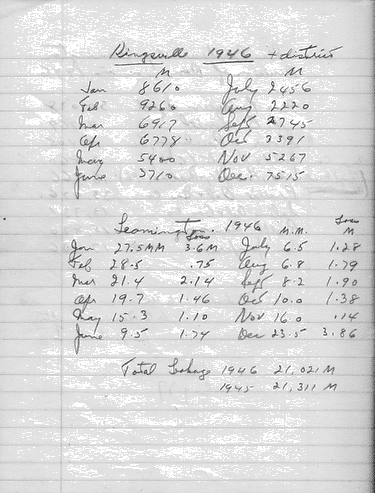 Kingsville 1946 + district
M M
Jan 8610 July 2456
Feb 9260 Aug 2220
Mar 6917 Sept 2745
Apr 6778 Oct 3391
May 5400 Nov 5267
June 3710 Dec. 7515
Leamington. 1946 Loss
Loss M.M. M
Jan 27.5 MM 3.6M July 6.5 1.28
Feb 28.5 .75 Aug 6.8 1.79
Mar 21.4 2.14 Sept 8.2 1.90
Apr 19.7 1.46 Oct 10.0 1.38
May 15.3 1.10 Nov 16.0 .14
June 9.5 1.74 Dec 23.5 3.86
Total Leakage 1946 21,021 M
1945 21,311 M